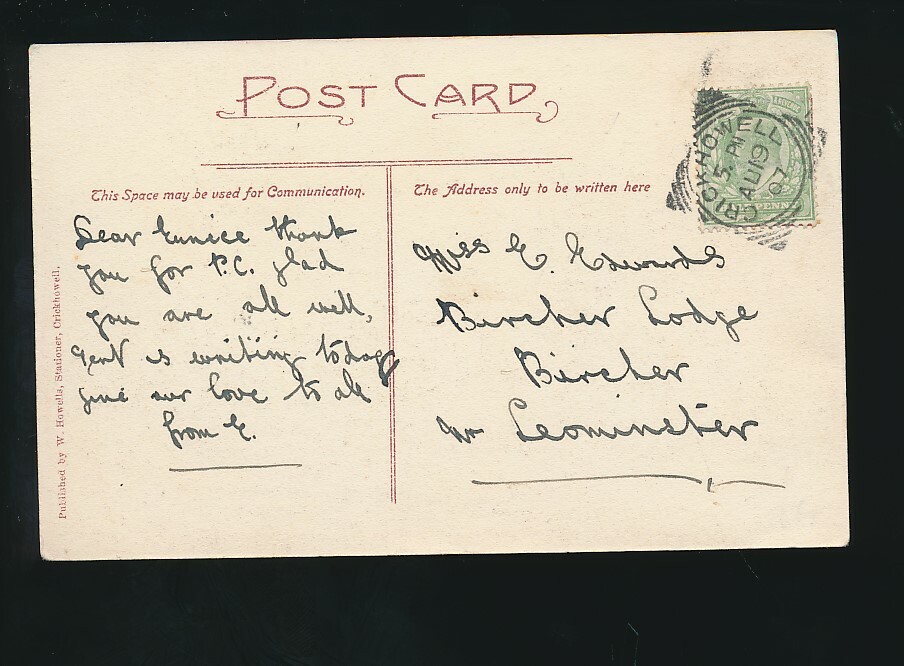 POST CARD
This Space may be used for Communication.
The Address only to be written here
Dear Eunice thank
you for P.C. glad
you are all well,
Gert is writing today
give our love to all
from E.
Miss E. Edwards
Bircher Lodge
Bircher
Nr Leominster
CRICKHOWELL
5. PM
AU 19
07
PENNY
Published by W. Howells, Stationer, Crickhowell.